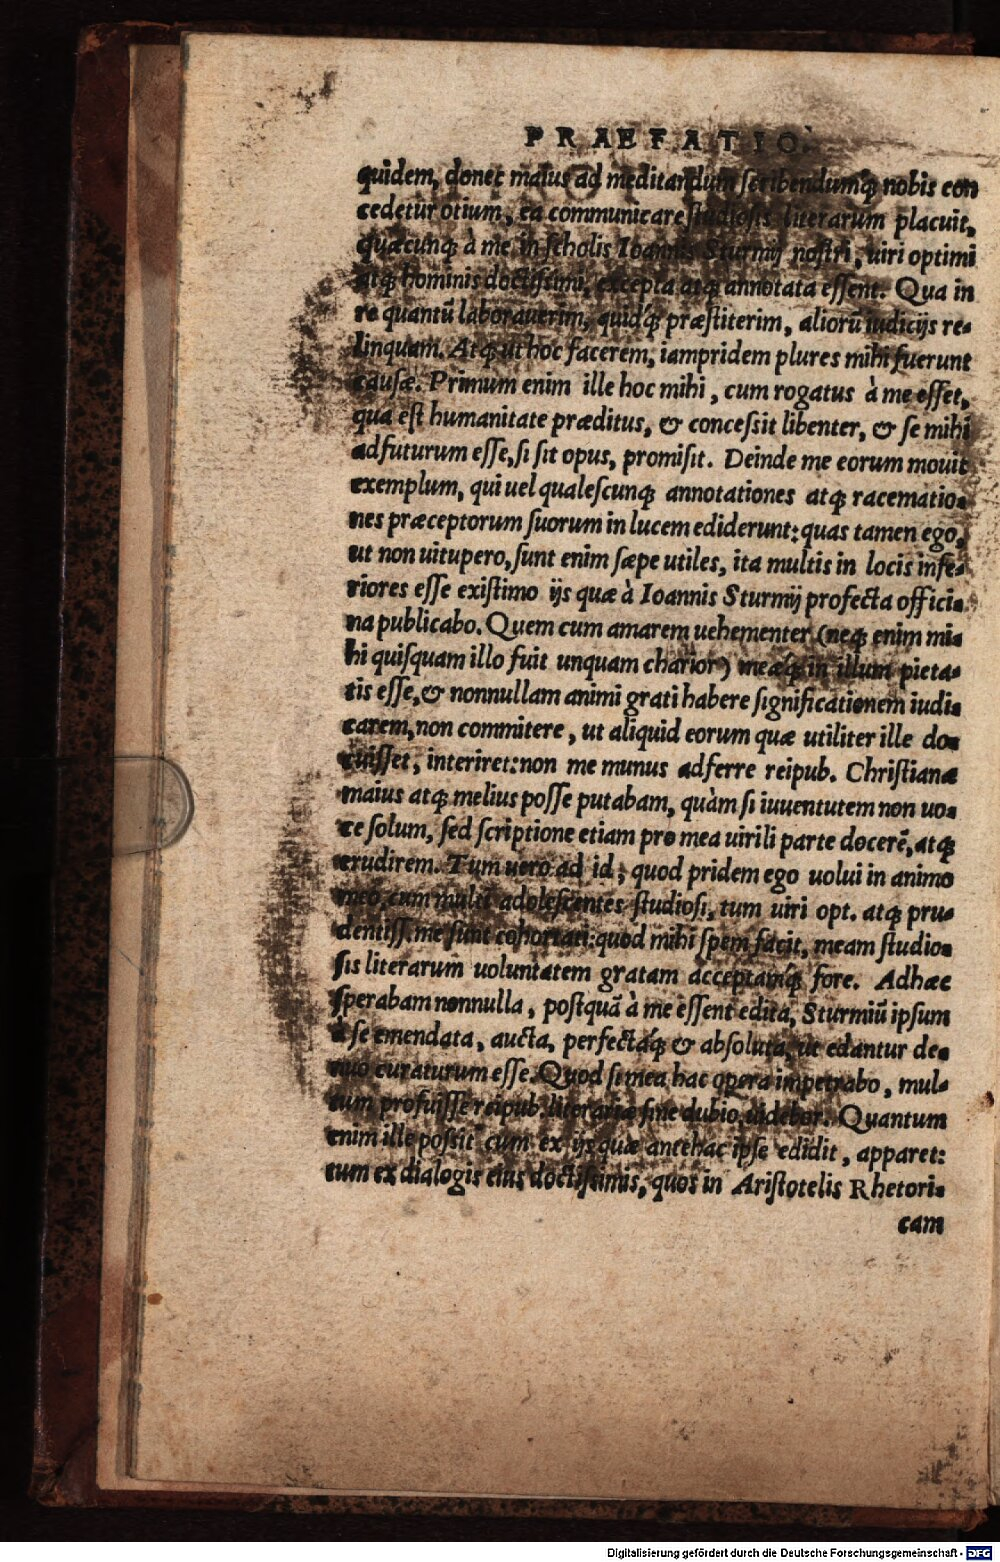 PRAEFATIO.
quidem, donec maius ad meditandum scribendumq́; nobis con
cedetur otium, ea communicare studiosis literarum placuit,
quæcunq; à me in scholis Ioannis Sturmij nostri, uiri optimi
atq; hominis doctissimi, excepta atq; annotata essent. Qua in
re quantũ laborauerim, quidq́; præstiterim, aliorũ iudicijs re-
linquam. Atq; ut hoc facerem, iampridem plures mihi fuerunt
causæ. Primum enim ille hoc mihi, cum rogatus à me esset,
qua est humanitate præditus, & concessit libenter, & se mihi
adfuturum esse, si sit opus, promisit. Deinde me eorum mouit
exemplum, qui uel qualescunq; annotationes atq; racematio-
nes præceptorum suorum in lucem ediderunt: quas tamen ego,
ut non uitupero, sunt enim sæpe utiles, ita multis in locis infe-
riores esse existimo ijs quæ à Ioannis Sturmij profecta offici-
na publicabo. Quem cum amarem uehementer (neq; enim mi-
hi quisquam illo fuit unquam charior) meæq́; in illum pieta-
tis esse, & nonnullam animi grati habere significationem iudi-
carem, non commitere, ut aliquid eorum quæ utiliter ille do-
cuisset, interiret: non me munus adferre reipub. Christianæ
maius atq; melius posse putabam, quàm si iuuentutem non uo-
ce solum, sed scriptione etiam pro mea uirili parte docerẽ, atq;
erudirem. Tum uero ad id, quod pridem ego uolui in animo
meo, cum multi adolescentes studiosi, tum uiri opt. atq; pru-
dentiss. me sunt cohortati: quod mihi spem facit, meam studio-
sis literarum uoluntatem gratam acceptamq́; fore. Adhæc
sperabam nonnulla, postquã à me essent edita, Sturmiũ ipsum
à se emendata, aucta, perfectaq́; & absoluta, ut edantur de-
nuo curaturum esse. Quod si mea hac opera impetrabo, mul-
tum profuisse reipub. literariæ sine dubio uidebor. Quantum
enim ille possit cum ex ijs quæ antehac ipse edidit, apparet:
tum ex dialogis eius doctissimis, quos in Aristotelis Rhetori-
cam
Digitalisierung gefördert durch die Deutsche Forschungsgemeinschaft - DFG